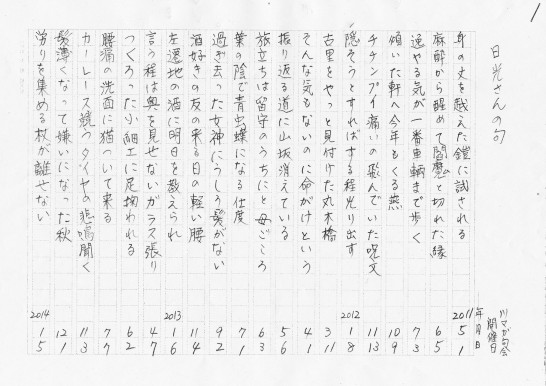 1
日光さんの句
川マガ句会
開催日
年月日
身の丈を越えた鎧に試される
2011 5 1
麻酔から醒めて閻魔と切れた縁
6 5
逸やる気が一番車輌まで歩く
7 3
傾いた軒へ今年もくる燕
10 9
チチンプイ痛いの飛んでいた呪文
11 13
隠そうとすればする程光り出す
2012 1 8
古里をやっと見付けた丸木橋
3 11
そんな気もないのに命がけという
4 1
振り返る道に山坂消えている
5 6
旅立ちは留守のうちにと母ごころ
6 3
葉の陰で青虫蝶になる仕度
7 1
過ぎ去った女神にうしろ髪がない
9 2
酒好きの友の来る日の軽い腰
11 4
左遷地の酒に明日を教えられ
2013 1 6
言う程は奥を見せないガラス張り
4 7
つくろった小細工に足掬われる
6 2
腰痛の洗面に猫ついて来る
7 7
カーレース競うタイヤの悲鳴聞く
11 3
髪薄くなって嫌いになった秋
12 1
労りを集める杖が離せない
2014 1 5